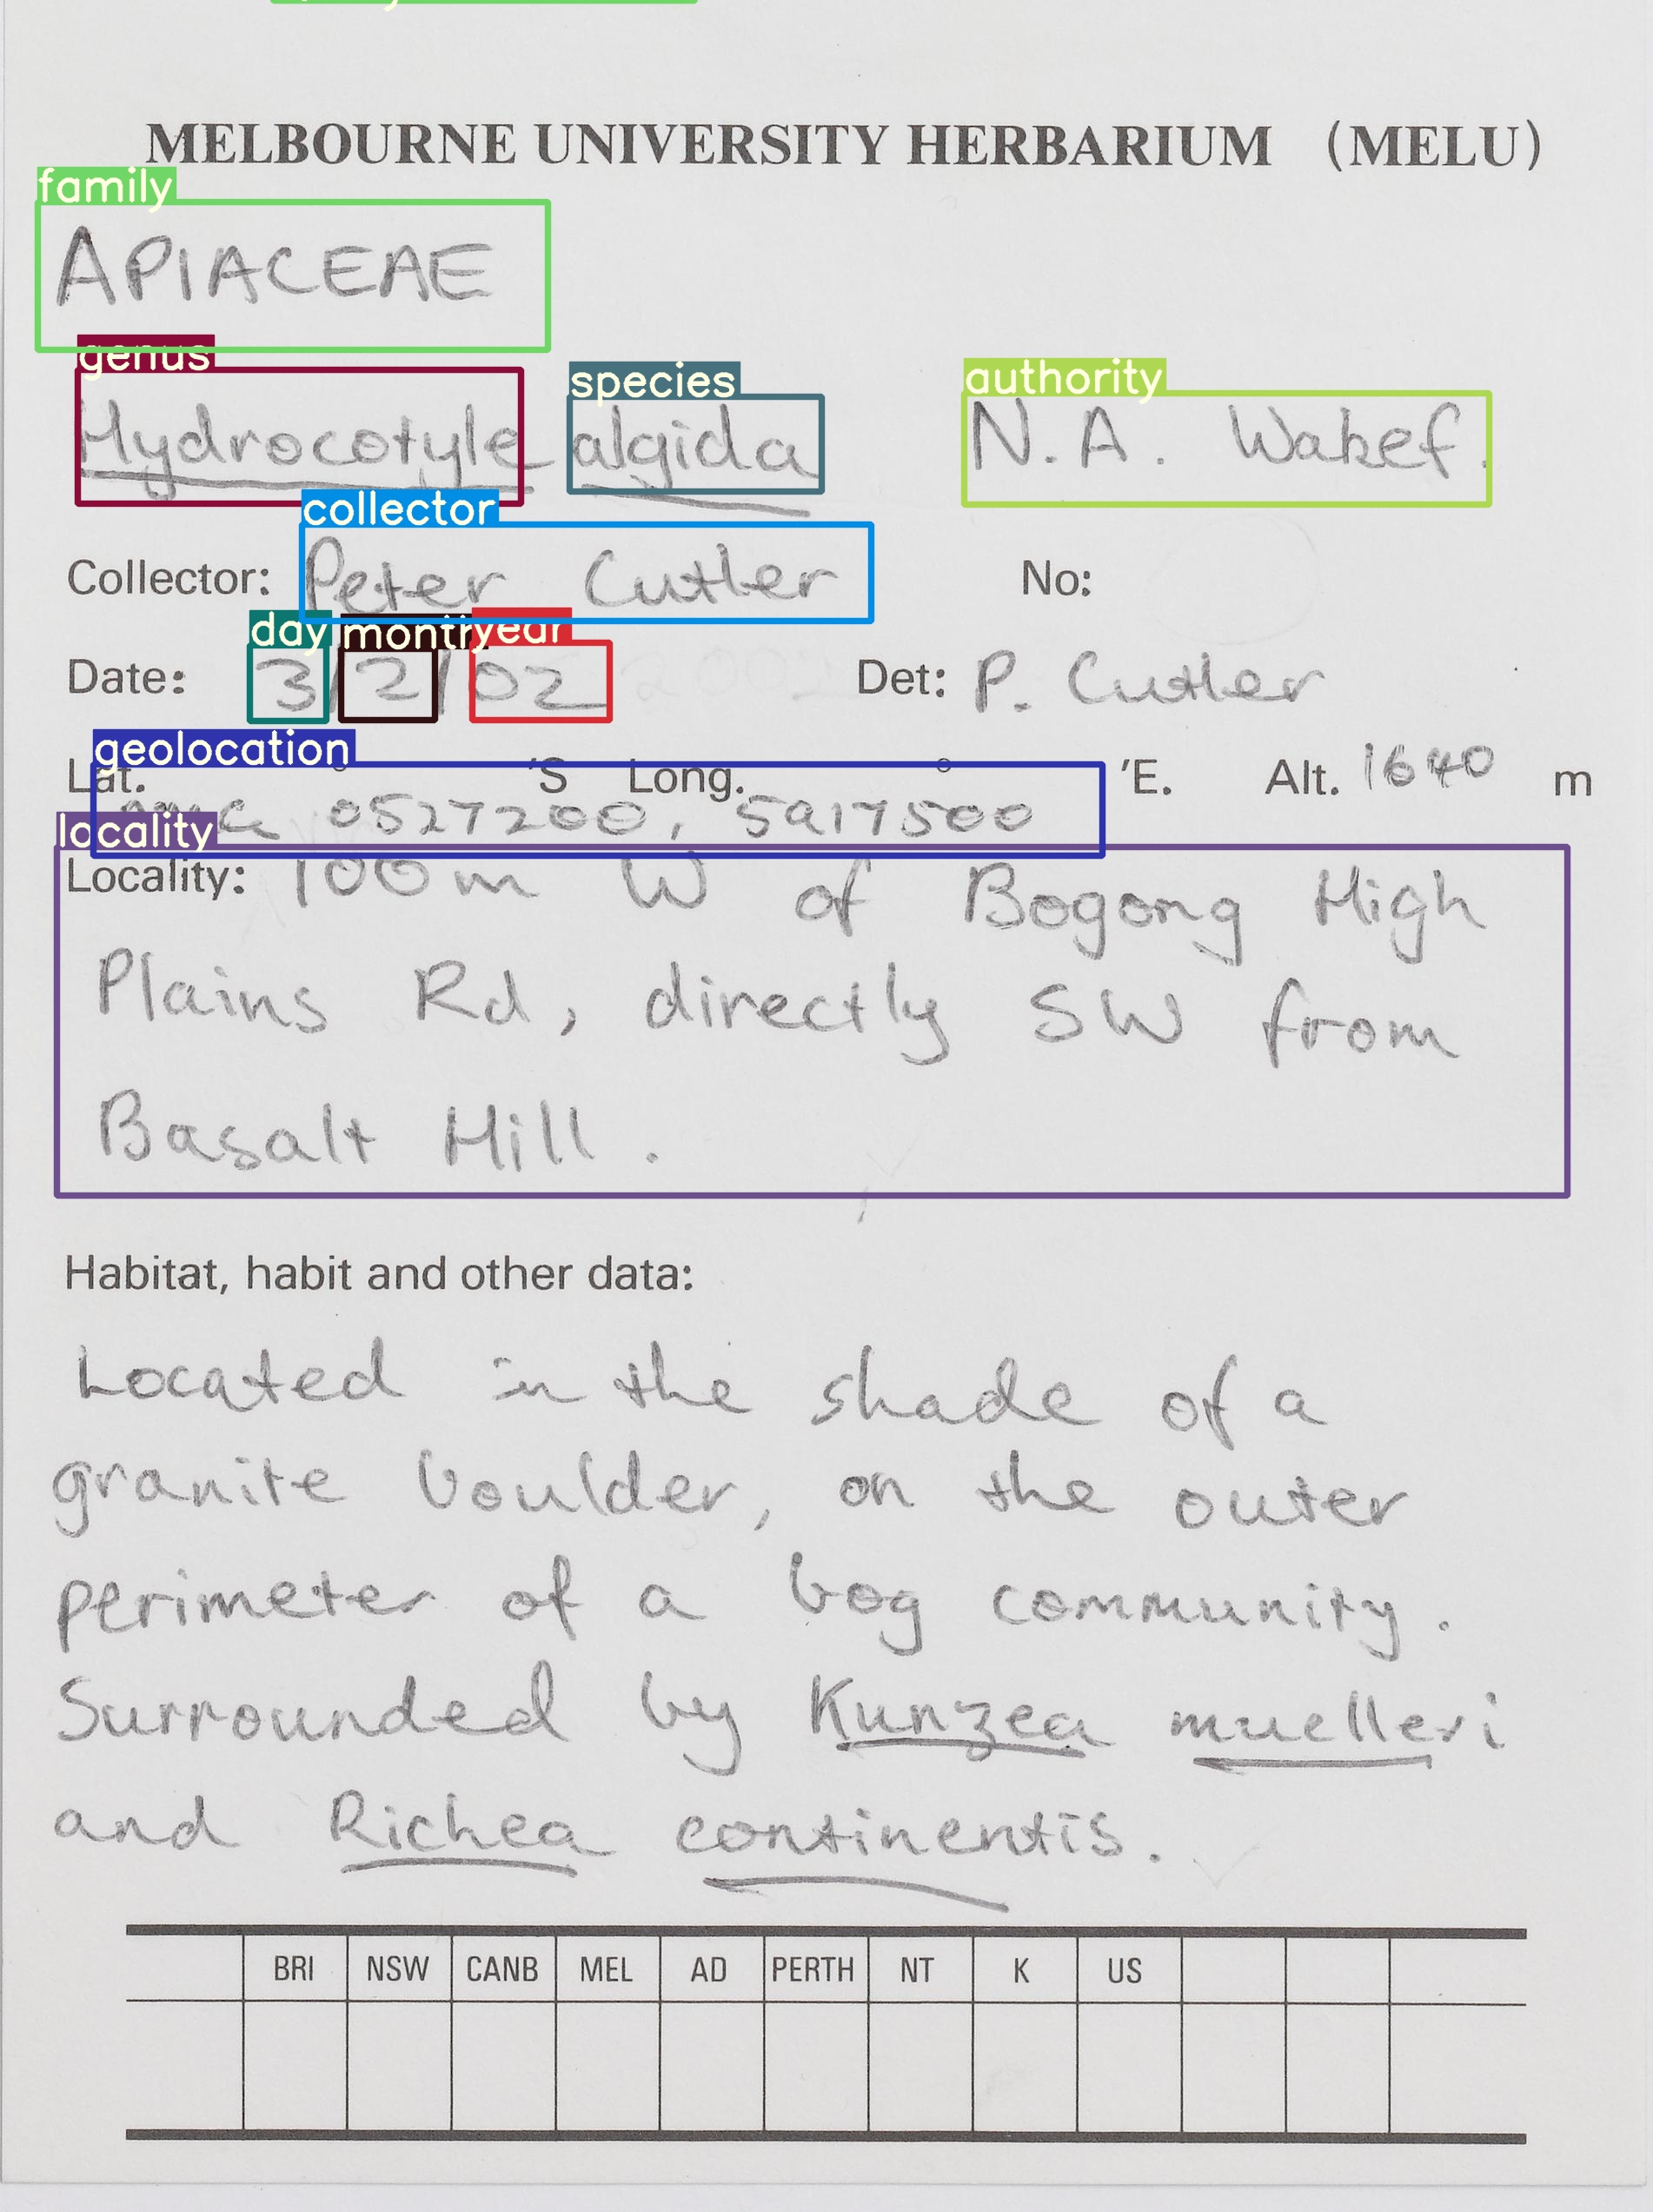 MELBOURNE UNIVERSITY HERBARIUM (MELU)
family
APIACEAE
genus
species
authority
Hydrocotyle algida N.A. Wakef.
collector
Collector: Peter Cutler No:
day month year
Date: 3/2/02 2002 Det: P. Cutler
geolocation
Lat. ° 'S Long. ° 'E. Alt. 1640 m
0527200, 5917500
locality
Locality: 100m W of Bogong High
Plains Rd, directly SW from
Basalt Hill.
Habitat, habit and other data:
Located in the shade of a
granite boulder, on the outer
perimeter of a bog community.
Surrounded by Kunzea muelleri
and Richea continentis.
BRI NSW CANB MEL AD PERTH NT K US